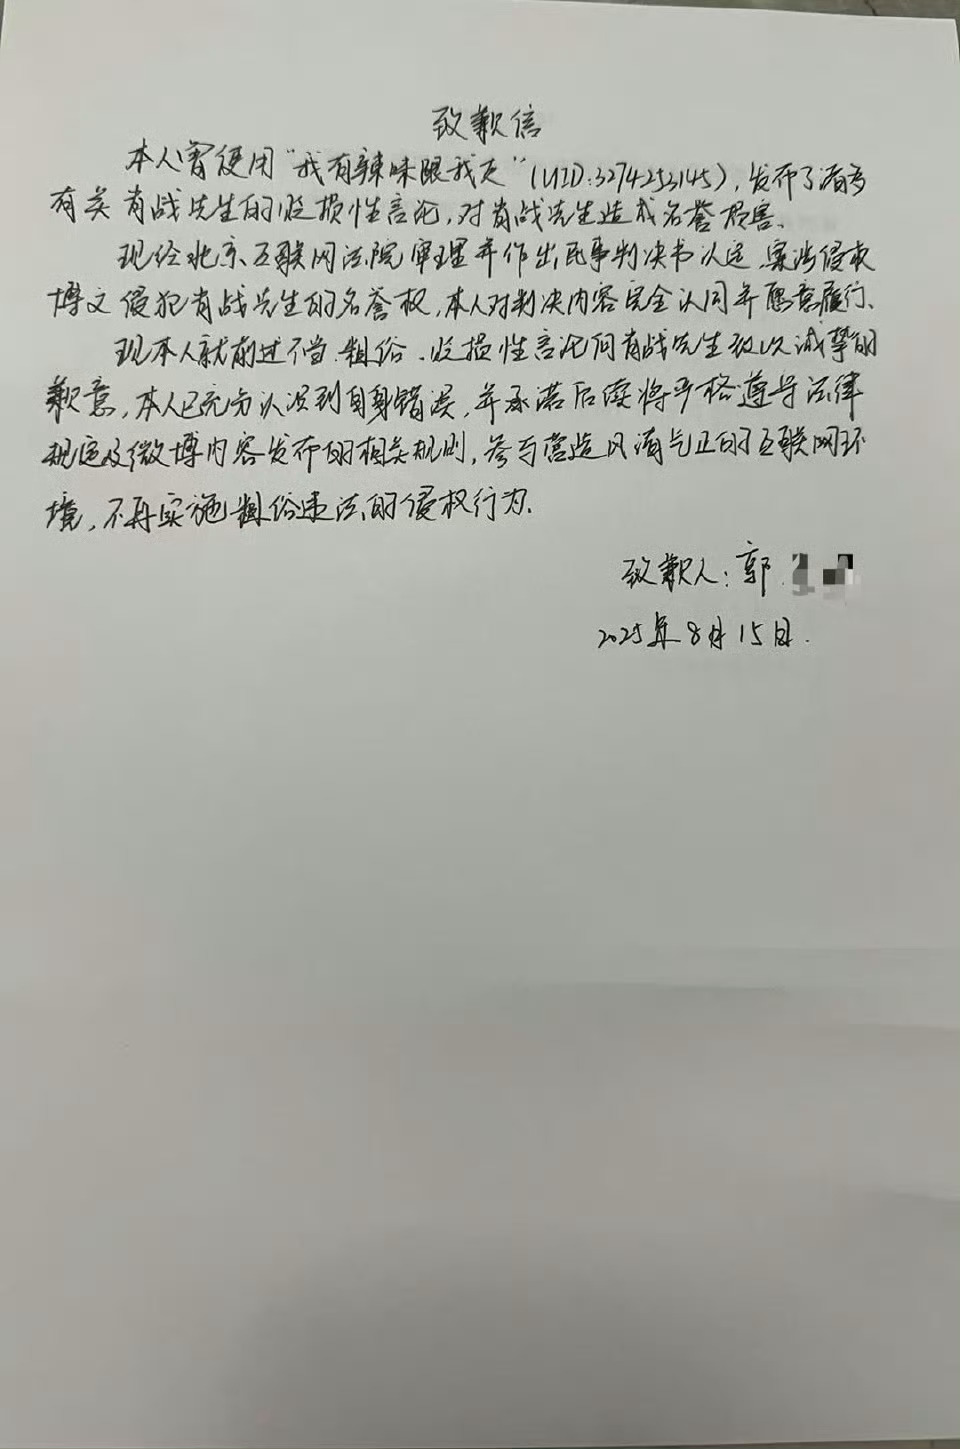 致歉信
本人曾使用“我有辣味跟我走”(UID:3274253145),发布了诸多
有关肖战先生的贬损性言论,对肖战先生造成名誉损害、
现经北京互联网法院审理并作出民事判决书认定,案涉侵权
博文侵犯肖战先生的名誉权,本人对判决内容完全认同并愿意履行、
现本人就前述不当、粗俗、贬损性言论向肖战先生致以诚挚的
歉意,本人已充分认识到自身错误,并承诺后续将严格遵守法律
规定及微博内容发布的相关规则,参与营造风清气正的互联网环
境,不再实施粗俗违法的侵权行为.
致歉人:郭
2025年8月15日.